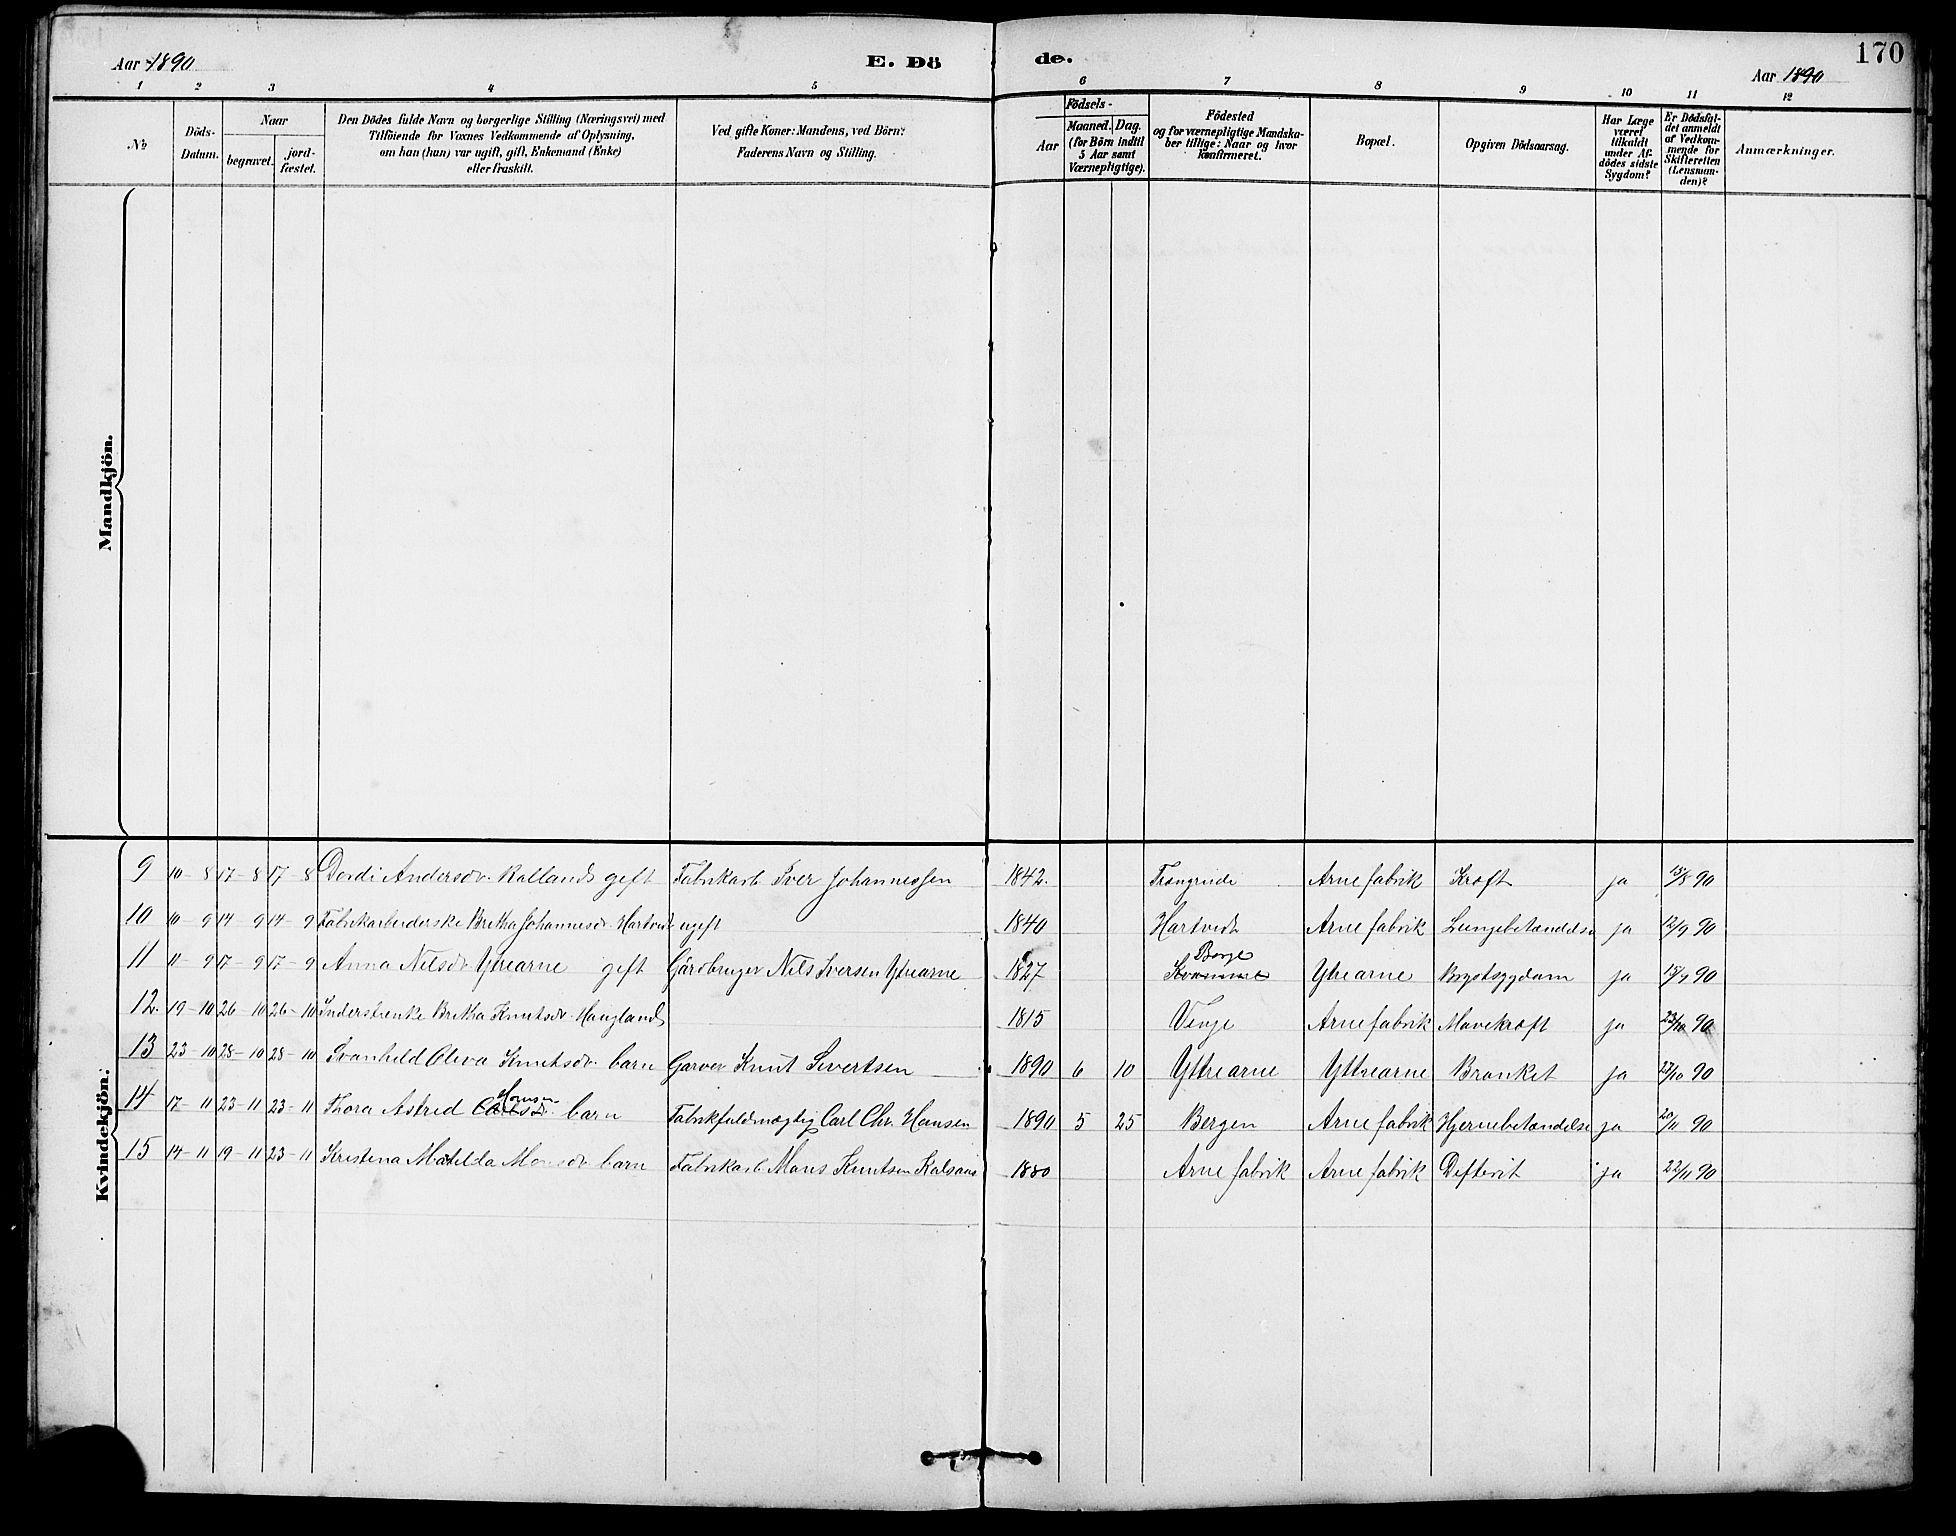 Aar 1890
E. Dö
de.
Aar 1890
170
1 2 3 4 5 6 7 8 9 10 11 12
No
Döds-Datum.
Naar
begravet.
jord-fæstet.
Den Dödes fulde Navn og borgerlige Stilling (Næringsvei) med
Tilföiende for Voxnes Vedkommende af Oplysning,
om han (hun) var ugift, gift, Enkemand (Enke)
eller fraskilt.
Ved gifte Koner: Mandens, ved Börn:
Faderens Navn og Stilling.
Födsels-
Aar
Maaned. Dag.
(for Börn indtil
5 Aar samt
Værnepligtige).
Födested
og for værnepligtige Mandska-
ber tillige: Naar og hvor
konfirmeret.
Bopæl.
Opgiven Dödsaarsag.
Har Læge
været
tilkaldt
under Af-
dödes sidste
Sygdom?
Er Dödsfal-
det anmeldt
af Vedkom-
mende for
Skifteretten
(Lensman-
den)?
Anmærkninger.
Mandkjön.
Kvindekjön.
9 10-8 17-8 17-8 Dordi Andersdr. Kalland gift Fabrikarb. Iver Johannessen 1842. Arne fabrik Kræft ja 15/8 90
10 10-9 14-9 14-9 Fabrikarbeiderske Bretha Johannesdr Hartvedt ugift 1840 Hartvedt Arne fabrik Lungebetændelse ja 12/9 90
11 11-9 17-9 17-9 Anna Nilsdr Ytrearne gift Gårdbruger Nils Iversen Ytrearne 1827 Borge Ytrearne Brystsygdom ja 90
12. 19-10 26-10 26-10 Inderstrenke Bretha Knutsdr. Haugland 1815 Vinje Arne fabrik Mavekræft ja 23/10 90
13 23-10 28-10 28-10 Svanhild Oliva Knutsdr. barn Garver Knut Sivertsen 1890 6 10 Yttrearne Yttrearne Bronket ja 27/10 90
14 17-11 23-11 23-11 Thora Astrid Hansen barn Fabrikfuldmægtig Carl Chr. Hansen 1890 5 25 Bergen Arne fabrik Hjernebetændelse ja 20/11 90
15 14-11 19-11 23-11 Kristina Matilda Monsdr barn Fabrikarb. Mons Knutsen Kalsaas 1880 Arne fabrik Arne fabrik Defterit ja 22/11 90